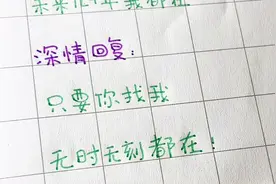 我都在
深情回复:
只要你找我
无时无刻都在!